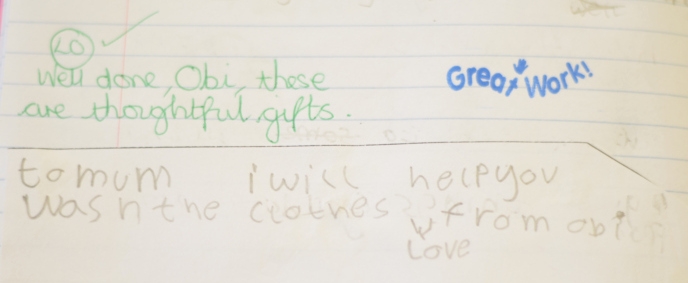 LO
Well done, Obi, these
are thoughtful gifts.
Great Work!
to mum i will help you
wash the clothes from obi
Love